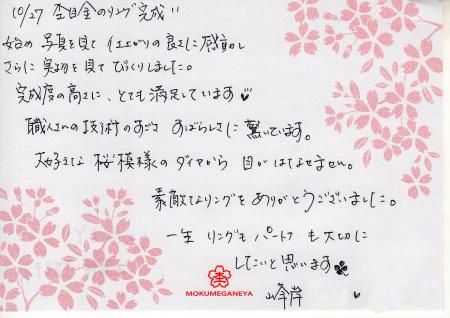 10/27 杢目金のリング完成!!
始めの写真を見て仕上がりの良さに感動し
さらに実物を見てびっくりしました。
完成度の高さに、とても満足しています
職人さんの技術のすごさ すばらしさに驚いています。
大好きな桜模様のダイヤから 目がはなせません。
素敵なリングをありがとうございました。
一生 リングも パートナーも 大切に
していこと思います
MOKUMEGANEYA
峰岸